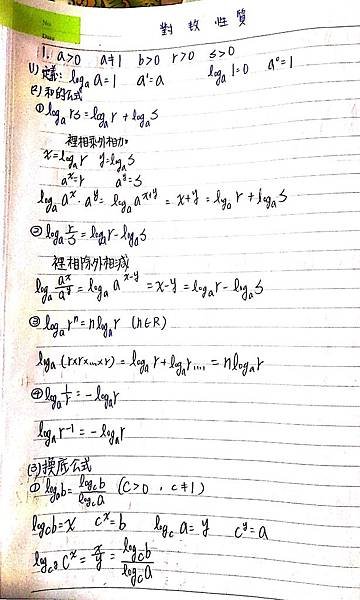 No.
Date
對數性質
1. a>0 a≠1 b>0 r>0 s>0
(1) 定義: logₐa=1 a¹=a logₐ1=0 a⁰=1
(2) 和的公式
① logₐrs=logₐr+logₐs
裡相乘外相加
x=logₐr y=logₐs
aˣ=r aʸ=s
logₐaˣ·aʸ=logₐaˣ⁺ʸ=x+y=logₐr+logₐs
② logₐ r/s=logₐr-logₐs
裡相除外相減
logₐ aˣ/aʸ=logₐaˣ⁻ʸ=x-y=logₐr-logₐs
③ logₐrⁿ=nlogₐr (n∈R)
logₐ(r×r×...×r)=logₐr+logₐr....=nlogₐr
④ logₐ 1/r=-logₐr
logₐr⁻¹=-logₐr
(3) 換底公式
① logₐb=log_c b/log_c a (c>0, c≠1)
log_c b=x cˣ=b log_c a=y cʸ=a
log_cʸ cˣ=x/y=log_c b/log_c a